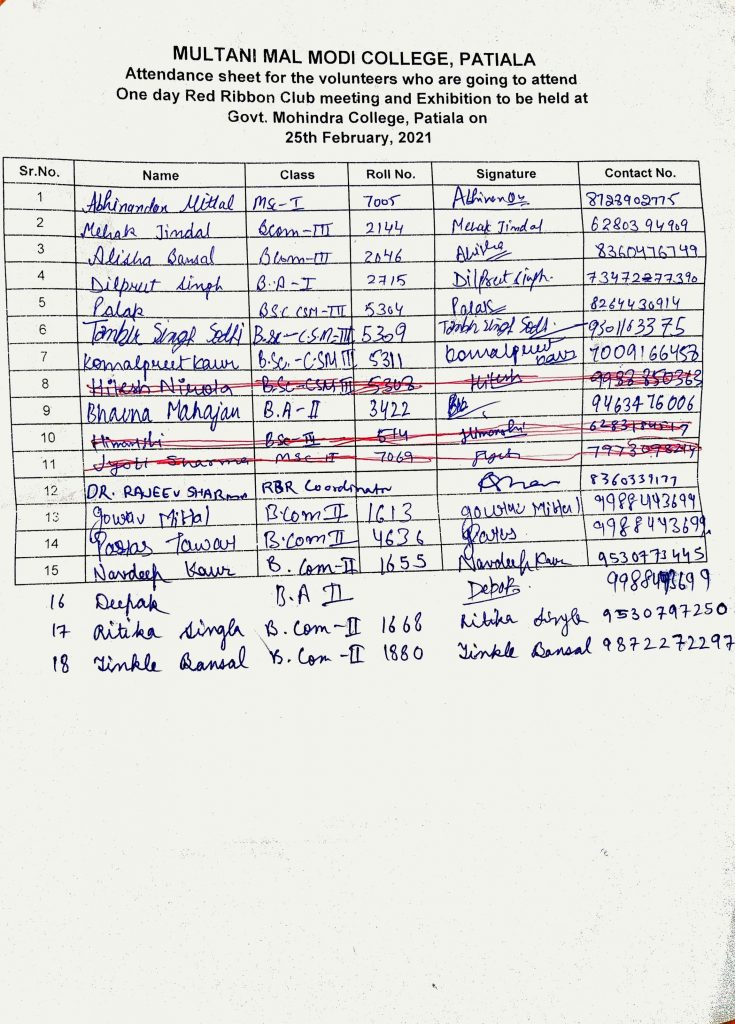 MULTANI MAL MODI COLLEGE, PATIALA
Attendance sheet for the volunteers who are going to attend
One day Red Ribbon Club meeting and Exhibition to be held at
Govt. Mohindra College, Patiala on
25th February, 2021
Sr.No. Name Class Roll No. Signature Contact No.
1 Abhinandan Mittal MSc-I 7005 8723902775
2 Mehak Jindal Bcom-III 2144 Mehak Jindal 6280394909
3 Alisha Bansal Bcom-III 2046 Alisha 8360476749
4 Dilpreet Singh B.A-I 2715 Dilpreet Singh. 73472277390
5 Palak BSC CSM-III 5304 Palak 8264430914
6 Singh Sodhi B.Sc-C.S.M-III 5309 Singh Sodhi. 9501163375
7 Komalpreet Kaur B.Sc.-CSM III 5311 Komalpreet Kaur 7009166458
8 Hitesh BSc-CSM III 5308 Hitesh
9 Bhavna Mahajan B.A-II 3422 9463476006
10 Himanshi Himanshi
11 Jyoti Sharma MSc II 7069
12 DR. RAJEEV SHARMA RRR Coordinator 8360339177
13 Gourav Mittal B.Com II 1613 Gourav Mittal 9988443699
14 B.Com II 4636 9988443699
15 Navdeep Kaur B. Com-II 1655 Navdeep Kaur 9530773445
16 Deepak B.A II
17 Ritika Singla B.Com-II 1668 Ritika Singla 9530797250
18 Tinkle Bansal B.Com-II 1880 Tinkle Bansal 9872272297